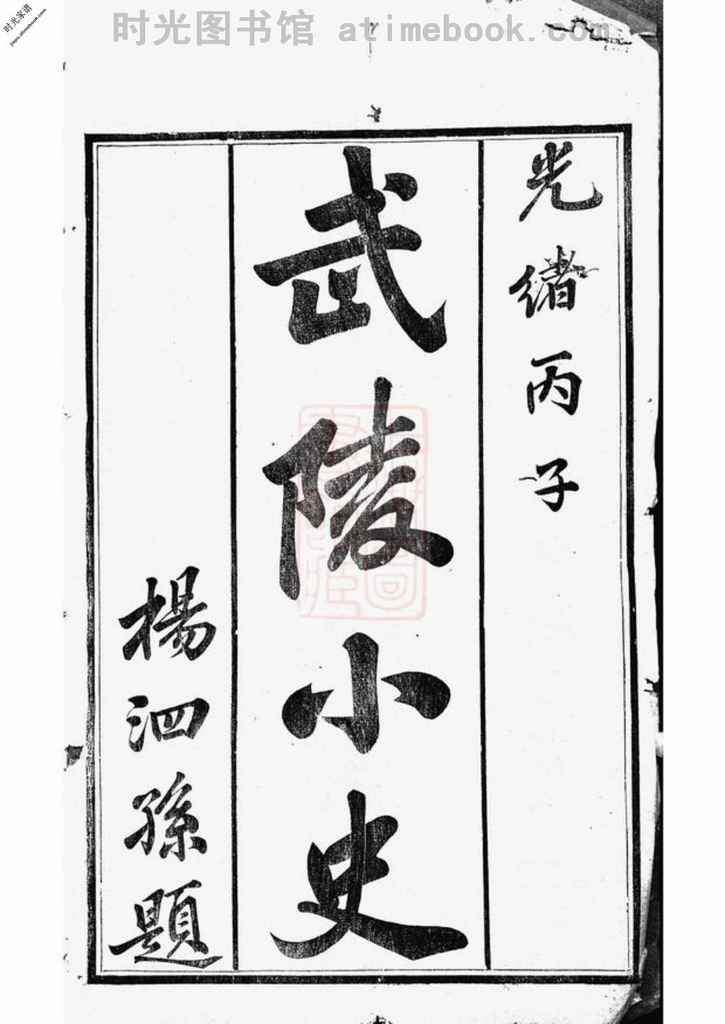 时光图书馆 atimebook.com
时光家谱
光緒丙子
武陵小史
楊泗孫題